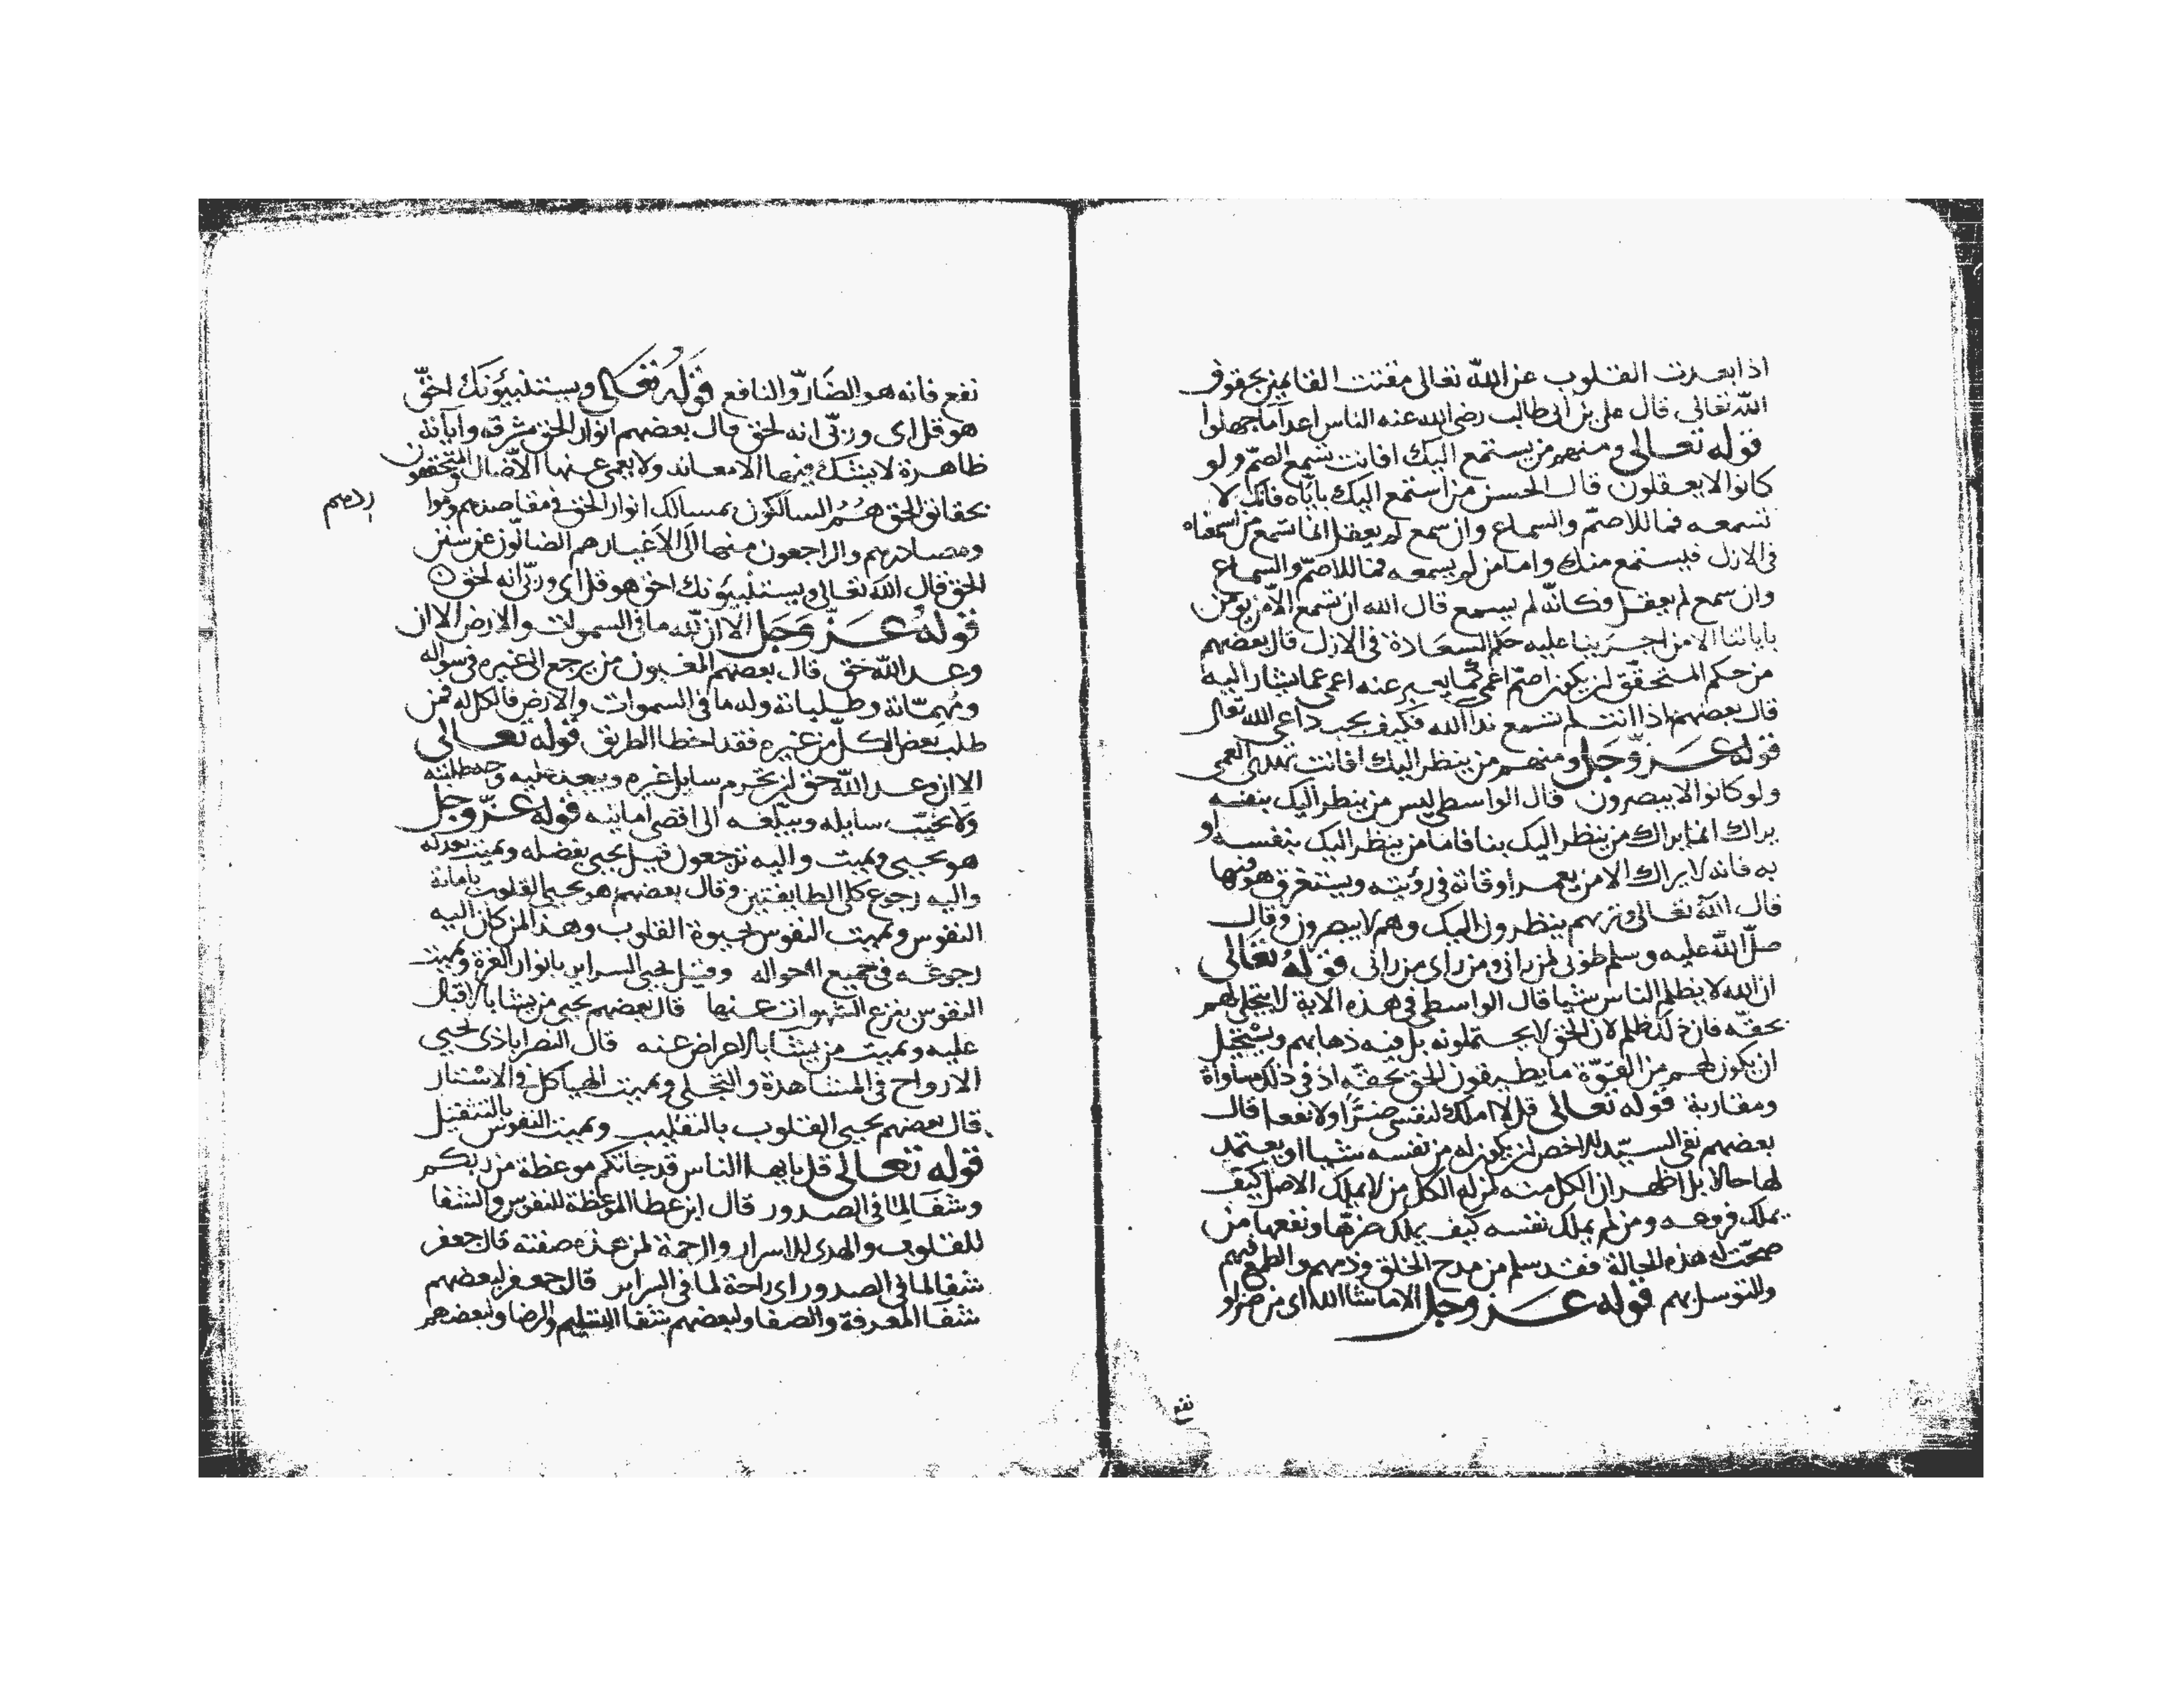 اذا بعدت القلوب عن الله تعالى مقتت القائمين بحقوق
الله تعالى قال على بن أبى طالب رضى الله عنه الناس اعدآ ما جهلوا
قوله تعالى ومنهم من يستمع اليك افانت تسمع الصمّ ولو
كانوا لا يعقلون قال الحسن من استمع اليك بايّاه فانك لا
تسمعه فما للاصمّ والسماع وان سمع لم يعقل انما تسمع من اسمعناه
فى الازل فيستمع منك واما من لم يسمعه فما للاصمّ والسماع
وان سمع لم يعقل وكانّه لم يسمع قال الله ان تسمع الّا من يومن
باياتنا الا من اجرينا عليه حكم السعادة فى الازل قال بعضهم
من حكم المتحقّق ان يكون اصمّ اعمى عما يعبر عنه اعمى عما يشار اليه
قال بعضهم اذا انت لم تسمع ندآ الله فكيف تجيب داعى الله تعالى
قوله عزّ وجل ومنهم من ينظر اليك افانت تهدى العمى
ولو كانوا لا يبصرون قال الواسطى ليس من ينظر اليك بنفسه
يراك انما يراك من ينظر اليك بنا فاما من ينظر اليك بنفسه او
به فانه لا يراك الا من يعمر اوقاته فى رؤيته ويستغرق هو فيها
قال الله تعالى وتريهم ينظرون اليك وهم لا يبصرون وقال
صلّى الله عليه وسلم طوبى لمن رانى ومن راى من رانى قوله تعالى
ان الله لا يظلم الناس شيا قال الواسطى فى هذه الاية لا يتجلى لهم
بحقّه فان ذلك ظلم لان الخلق لا يحتملونه بل فيه ذهابهم ويستحيل
ان يكون لهم من القوّة ما يطيقون الحق بحقّه اذ فى ذلك مساواة
ومقاربة قوله تعالى قل لا املك لنفسى ضرّا ولا نفعا قال
بعضهم نفى السيّد الاخص ان يكون له من نفسه شيا او يعتمد
لها حالا بل اظهر ان الكل منه من له الكل من لا يملك الاصل كيف
يملك فروعه ومن لم يملك نفسه كيف يملك ضرّها ونفعها من
صحّت له هذه الحالة فقد سلم من مدح الخلق وذمهم والطمع فيهم
والتوسل بهم قوله عز وجل الا ما شا الله اى من ضر او
نفع
نفع فانه هو الضارّ والنافع قوله تعالى ويستنبئونك احقّ
هو قل اى وربّى انه لحق قال بعضهم انوار الحق مشرقه وآياته
ظاهرة لا يشك فيها الا معاند ولا يعمى عنها الا ضال والمتحققون
بحقائق الحق هم السالكون بمسالك انوار الحق فى مقاصدهم ومواردهم
ومصادرهم والراجعون منها الى الاغيار هم الضالّون عن سنن
الحق قال الله تعالى ويستنبئونك احق هو قل اى وربّى انه لحق
قوله عزّ وجل الا ان لله ما فى السموات والارض الا ان
وعد الله حق قال بعضهم المغبون من يرجع الى غيره فى سؤاله
ومهمّاته وطلباته وله ما فى السموات والارض فالكل له فمن
طلب بعض الكلّ من غيره فقد اخطا الطريق قوله تعالى
الا ان وعد الله حق لن يحرم سايل غيره ويبعد عليه وجه طلبته
ولا يخيّب سايله ويبلّغه الى اقصى امانيه قوله عزّ وجل
هو يحيى ويميت واليه ترجعون قيل يحيى بفضله ويميت بعدله
واليه رجوع كلى الطايفتين وقال بعضهم هو يحيى القلوب باماتة
النفوس ويميت النفوس لحيوة القلوب وهذا لمن كان اليه
رجوعه فى جميع احواله وقيل يحيى السراير بانوار العزة ويميت
النفوس بنزع الشهوات عنها قال بعضهم يحيى من يشا بالاقبال
عليه ويميت من يشا بالاعراض عنه قال النصراباذى يحيى
الارواح فى المشاهدة والتجلى ويميت الهياكل فى الاستتار
قال بعضهم يحيى القلوب بالتقليب ويميت النفوس بالتنقيل
قوله تعالى قل يايها الناس قد جاتكم موعظة من ربكم
وشفا لما فى الصدور قال ابن عطا الموعظة للنفوس والشفا
للقلوب والهدى للاسرار والرحمة لمن هذه صفته قال جعفر
شفا لما فى الصدور اى راحة لما فى السراير قال جعفر لبعضهم
شفا المعرفة والصفا ولبعضهم شفا التسليم والرضا ولبعضهم